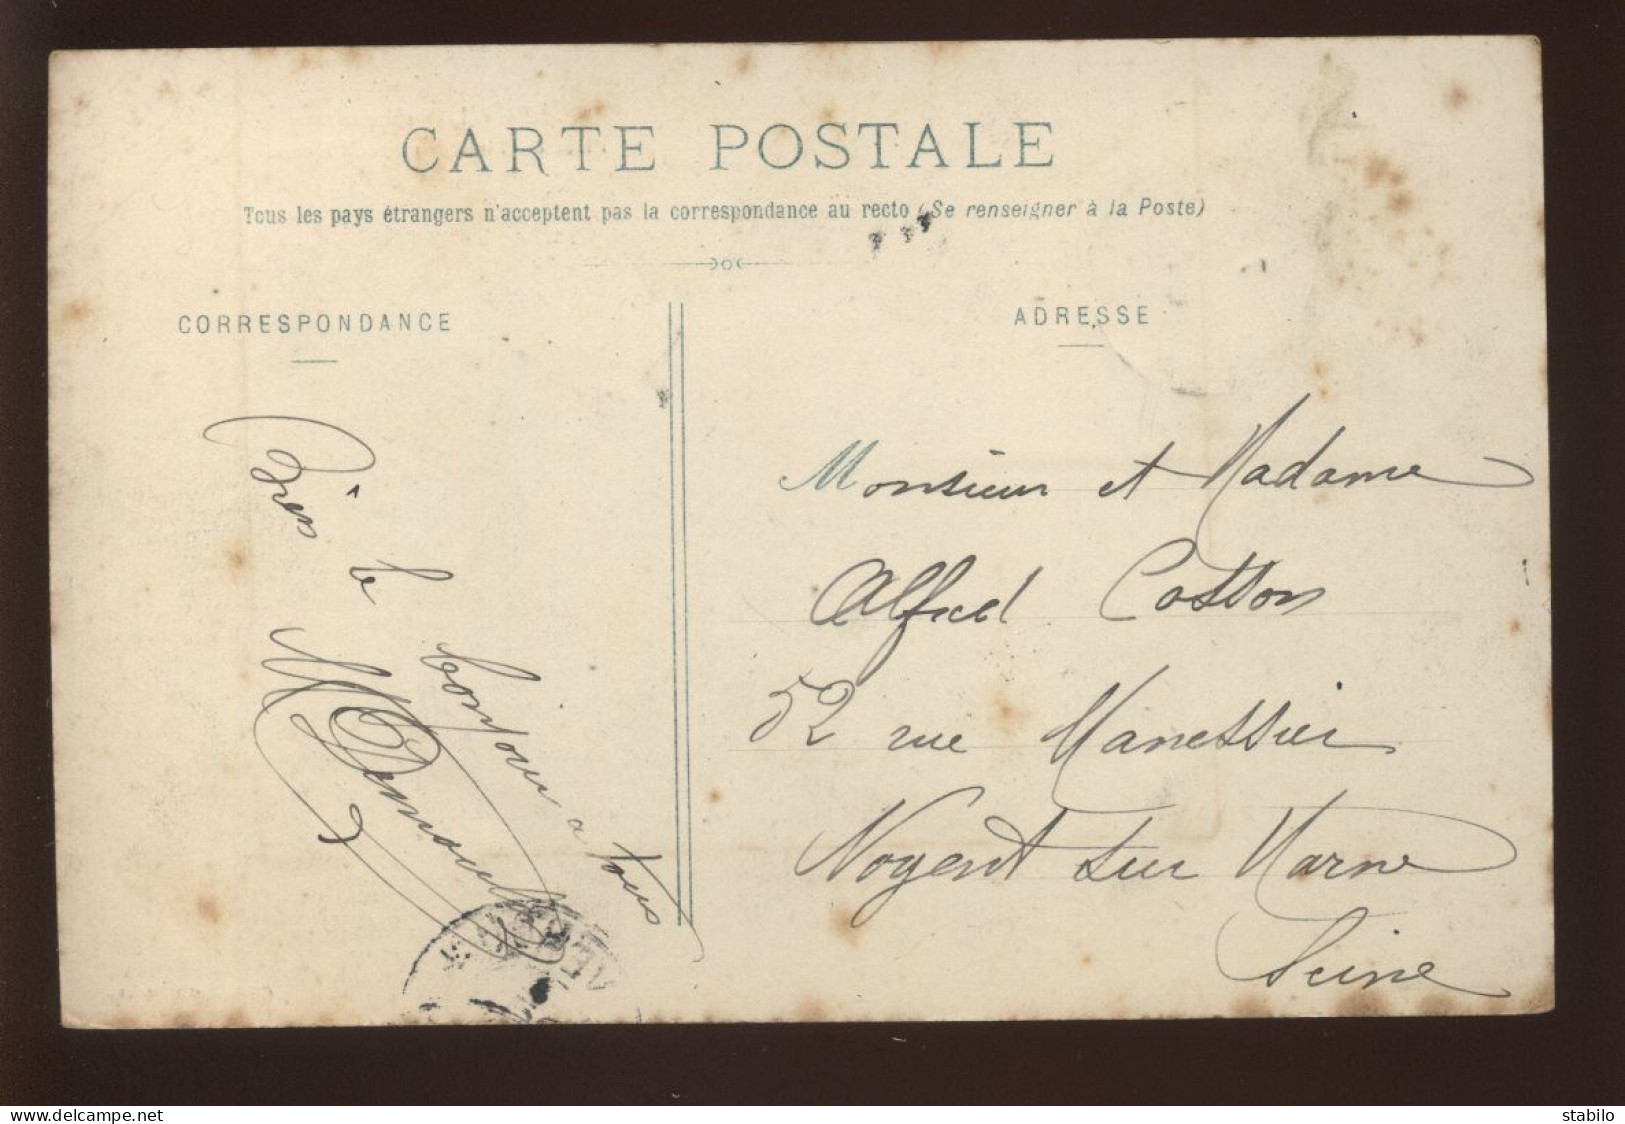 CARTE POSTALE
Tous les pays étrangers n'acceptent pas la correspondance au recto (Se renseigner à la Poste)
CORRESPONDANCE
ADRESSE
le
bonjour a tous
Monsieur et Madame
Alfred Cotton
52 rue Manessier
Nogent sur Marne
Seine
delcampe.net
stabilo